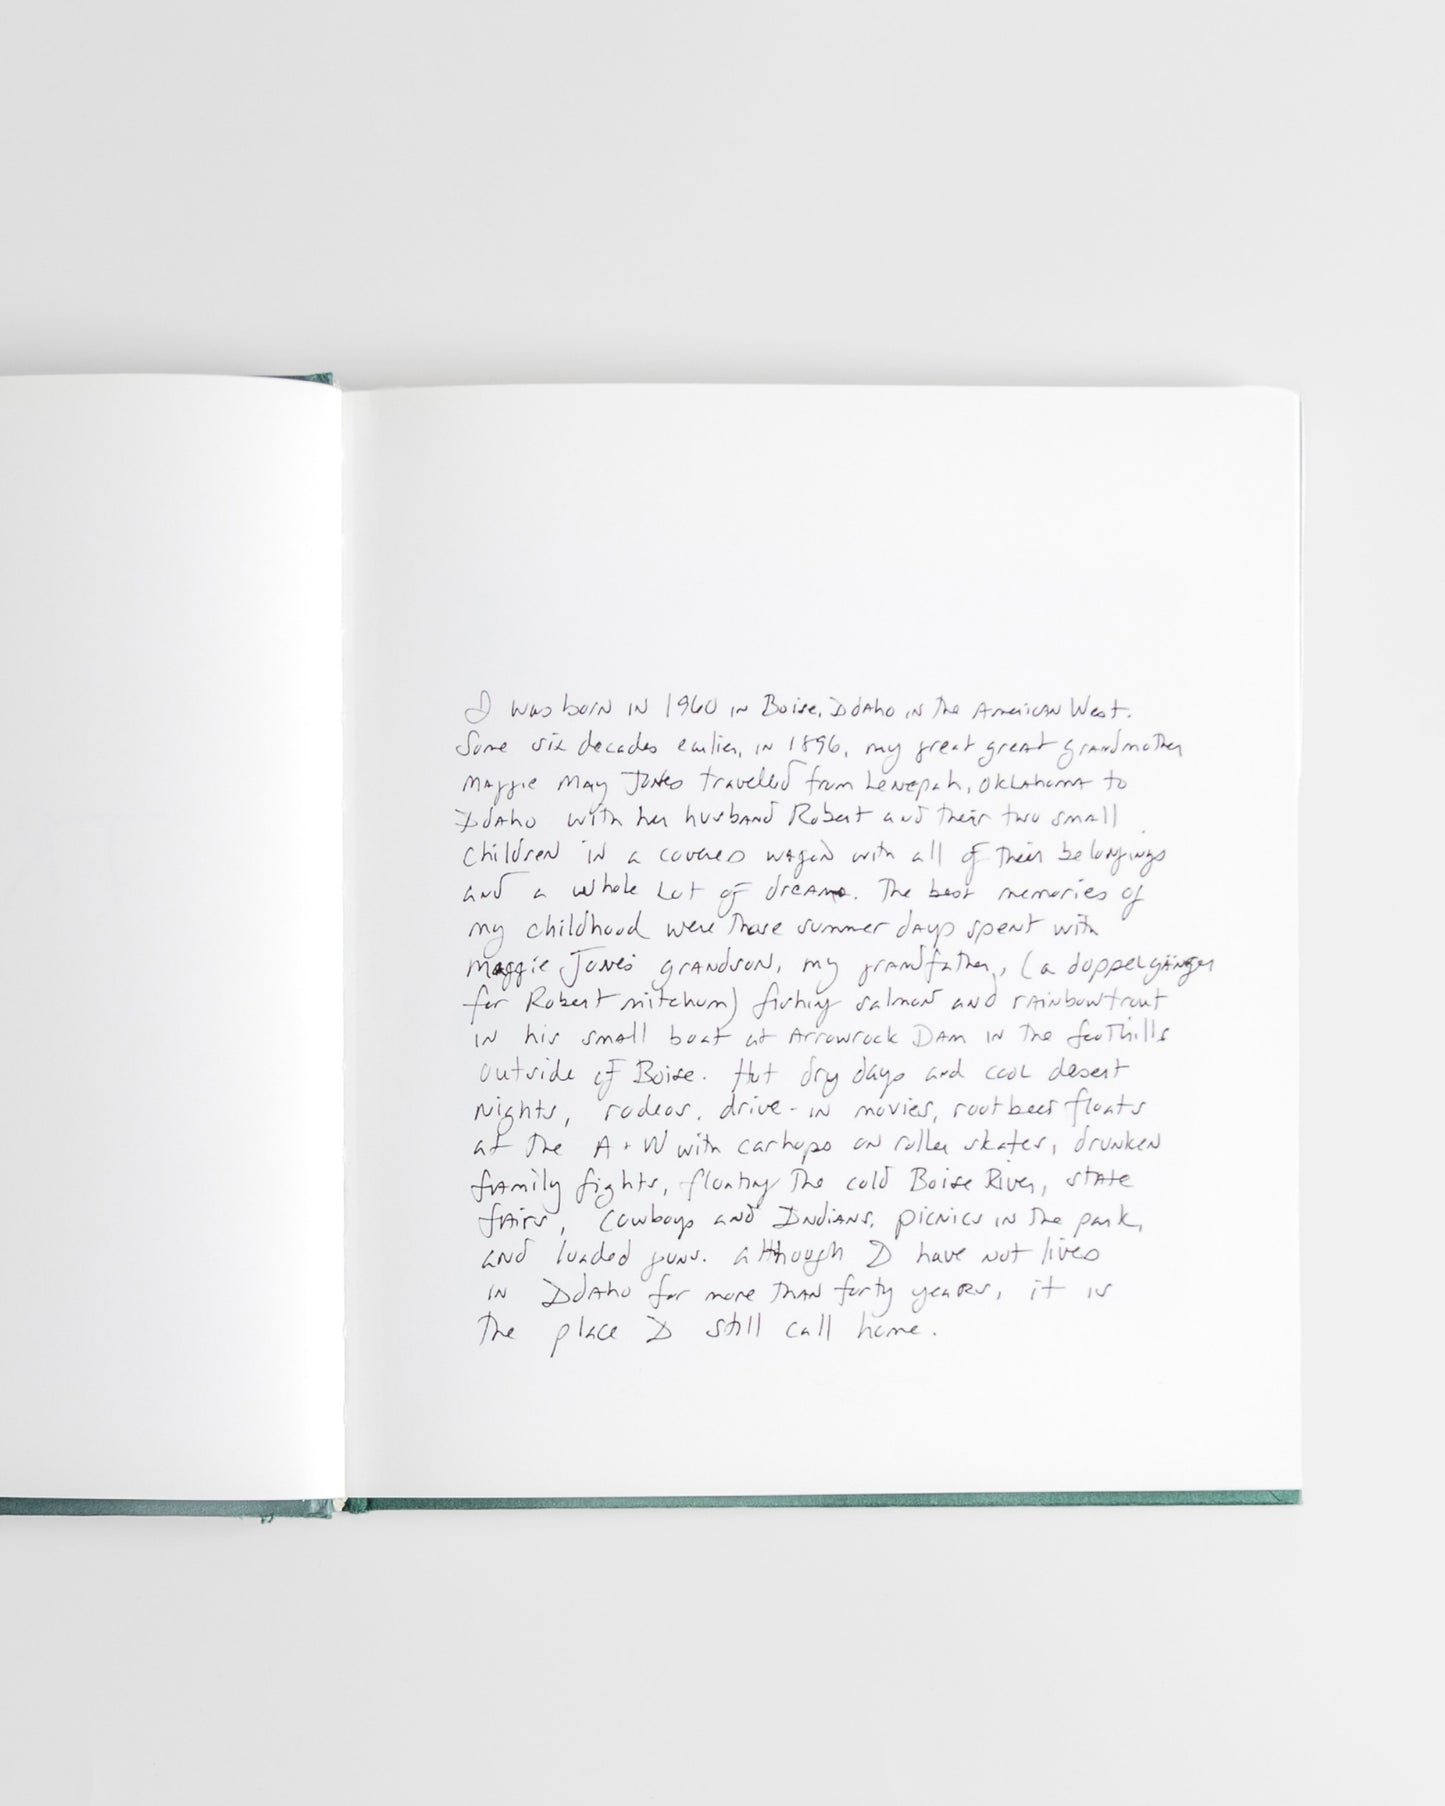 I was born in 1960 in Boise, Idaho in the American West.
Some six decades earlier, in 1896, my great great grandmother
Maggie May Jones travelled from Lenepah, Oklahoma to
Idaho with her husband Robert and their two small
children in a covered wagon with all of their belongings
and a whole lot of dreams. The best memories of
my childhood were those summer days spent with
Maggie Jones grandson, my grandfather, (a doppelgänger
for Robert Mitchum) fishing salmon and rainbow trout
in his small boat at Arrowrock Dam in the foothills
outside of Boise. Hot dry days and cool desert
nights, rodeos, drive-in movies, root beer floats
at the A+W with carhops on roller skates, drunken
family fights, floating the cold Boise River, state
fairs, Cowboys and Indians, picnics in the park,
and loaded guns. Although I have not lived
in Idaho for more than forty years, it is
the place I still call home.